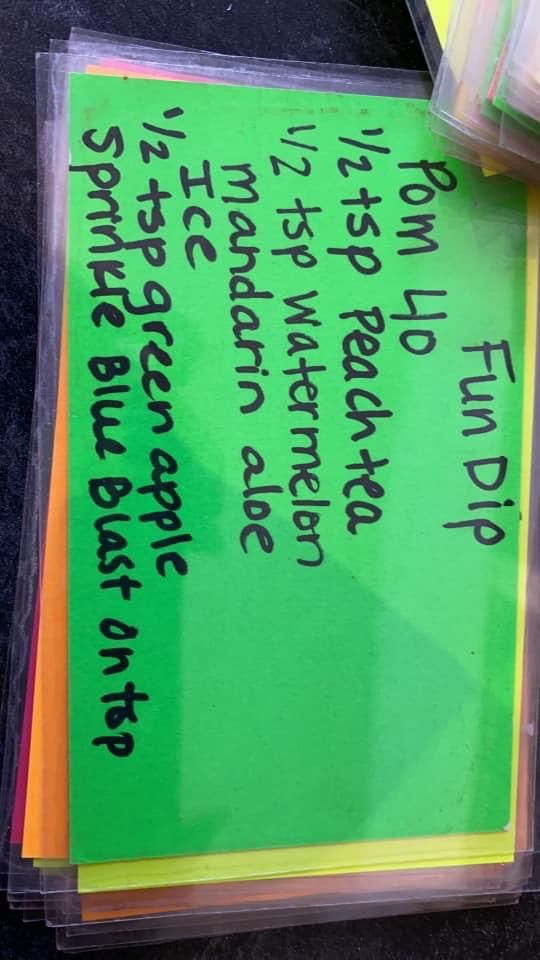 Fun Dip
Pom 40
1/2 tsp Peach tea
1/2 tsp Watermelon
mandarin aloe
Ice
1/2 tsp green apple
Sprinkle Blue Blast on top